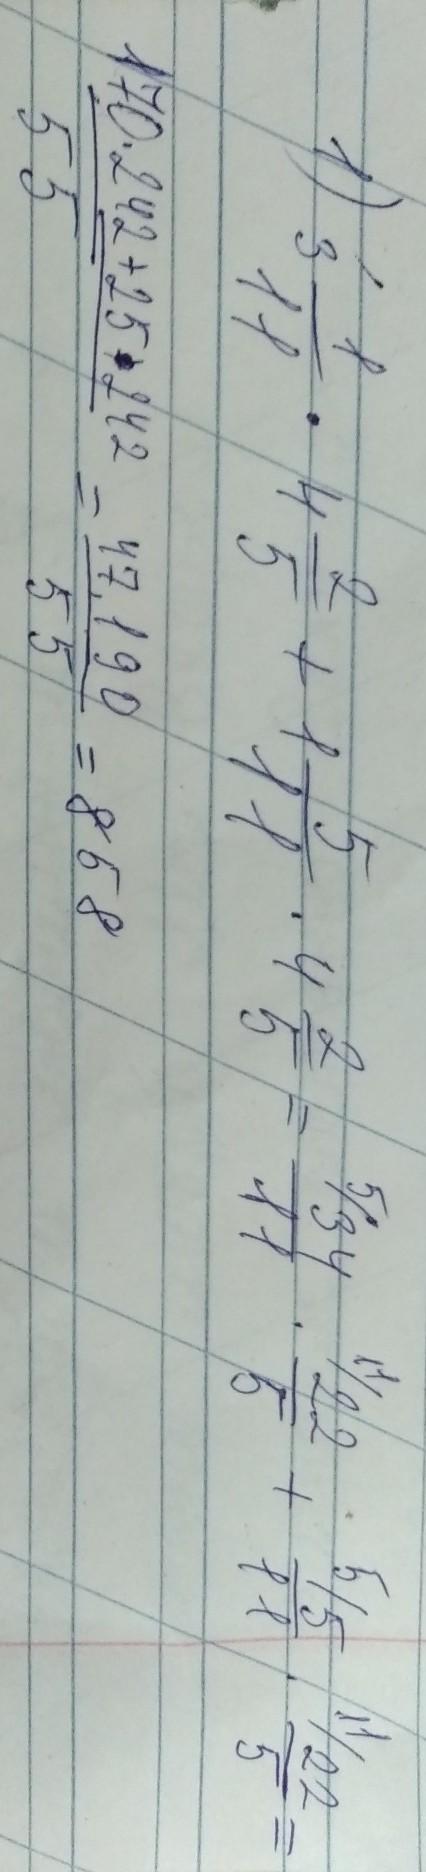 1) 3 1/11 · 4 2/5 + 1 5/11 · 4 2/5 = 5/34/11 · 11/22/5 + 5/5/11 · 11/22/5 =
170·242+25·242/55 = 47190/55 = 858